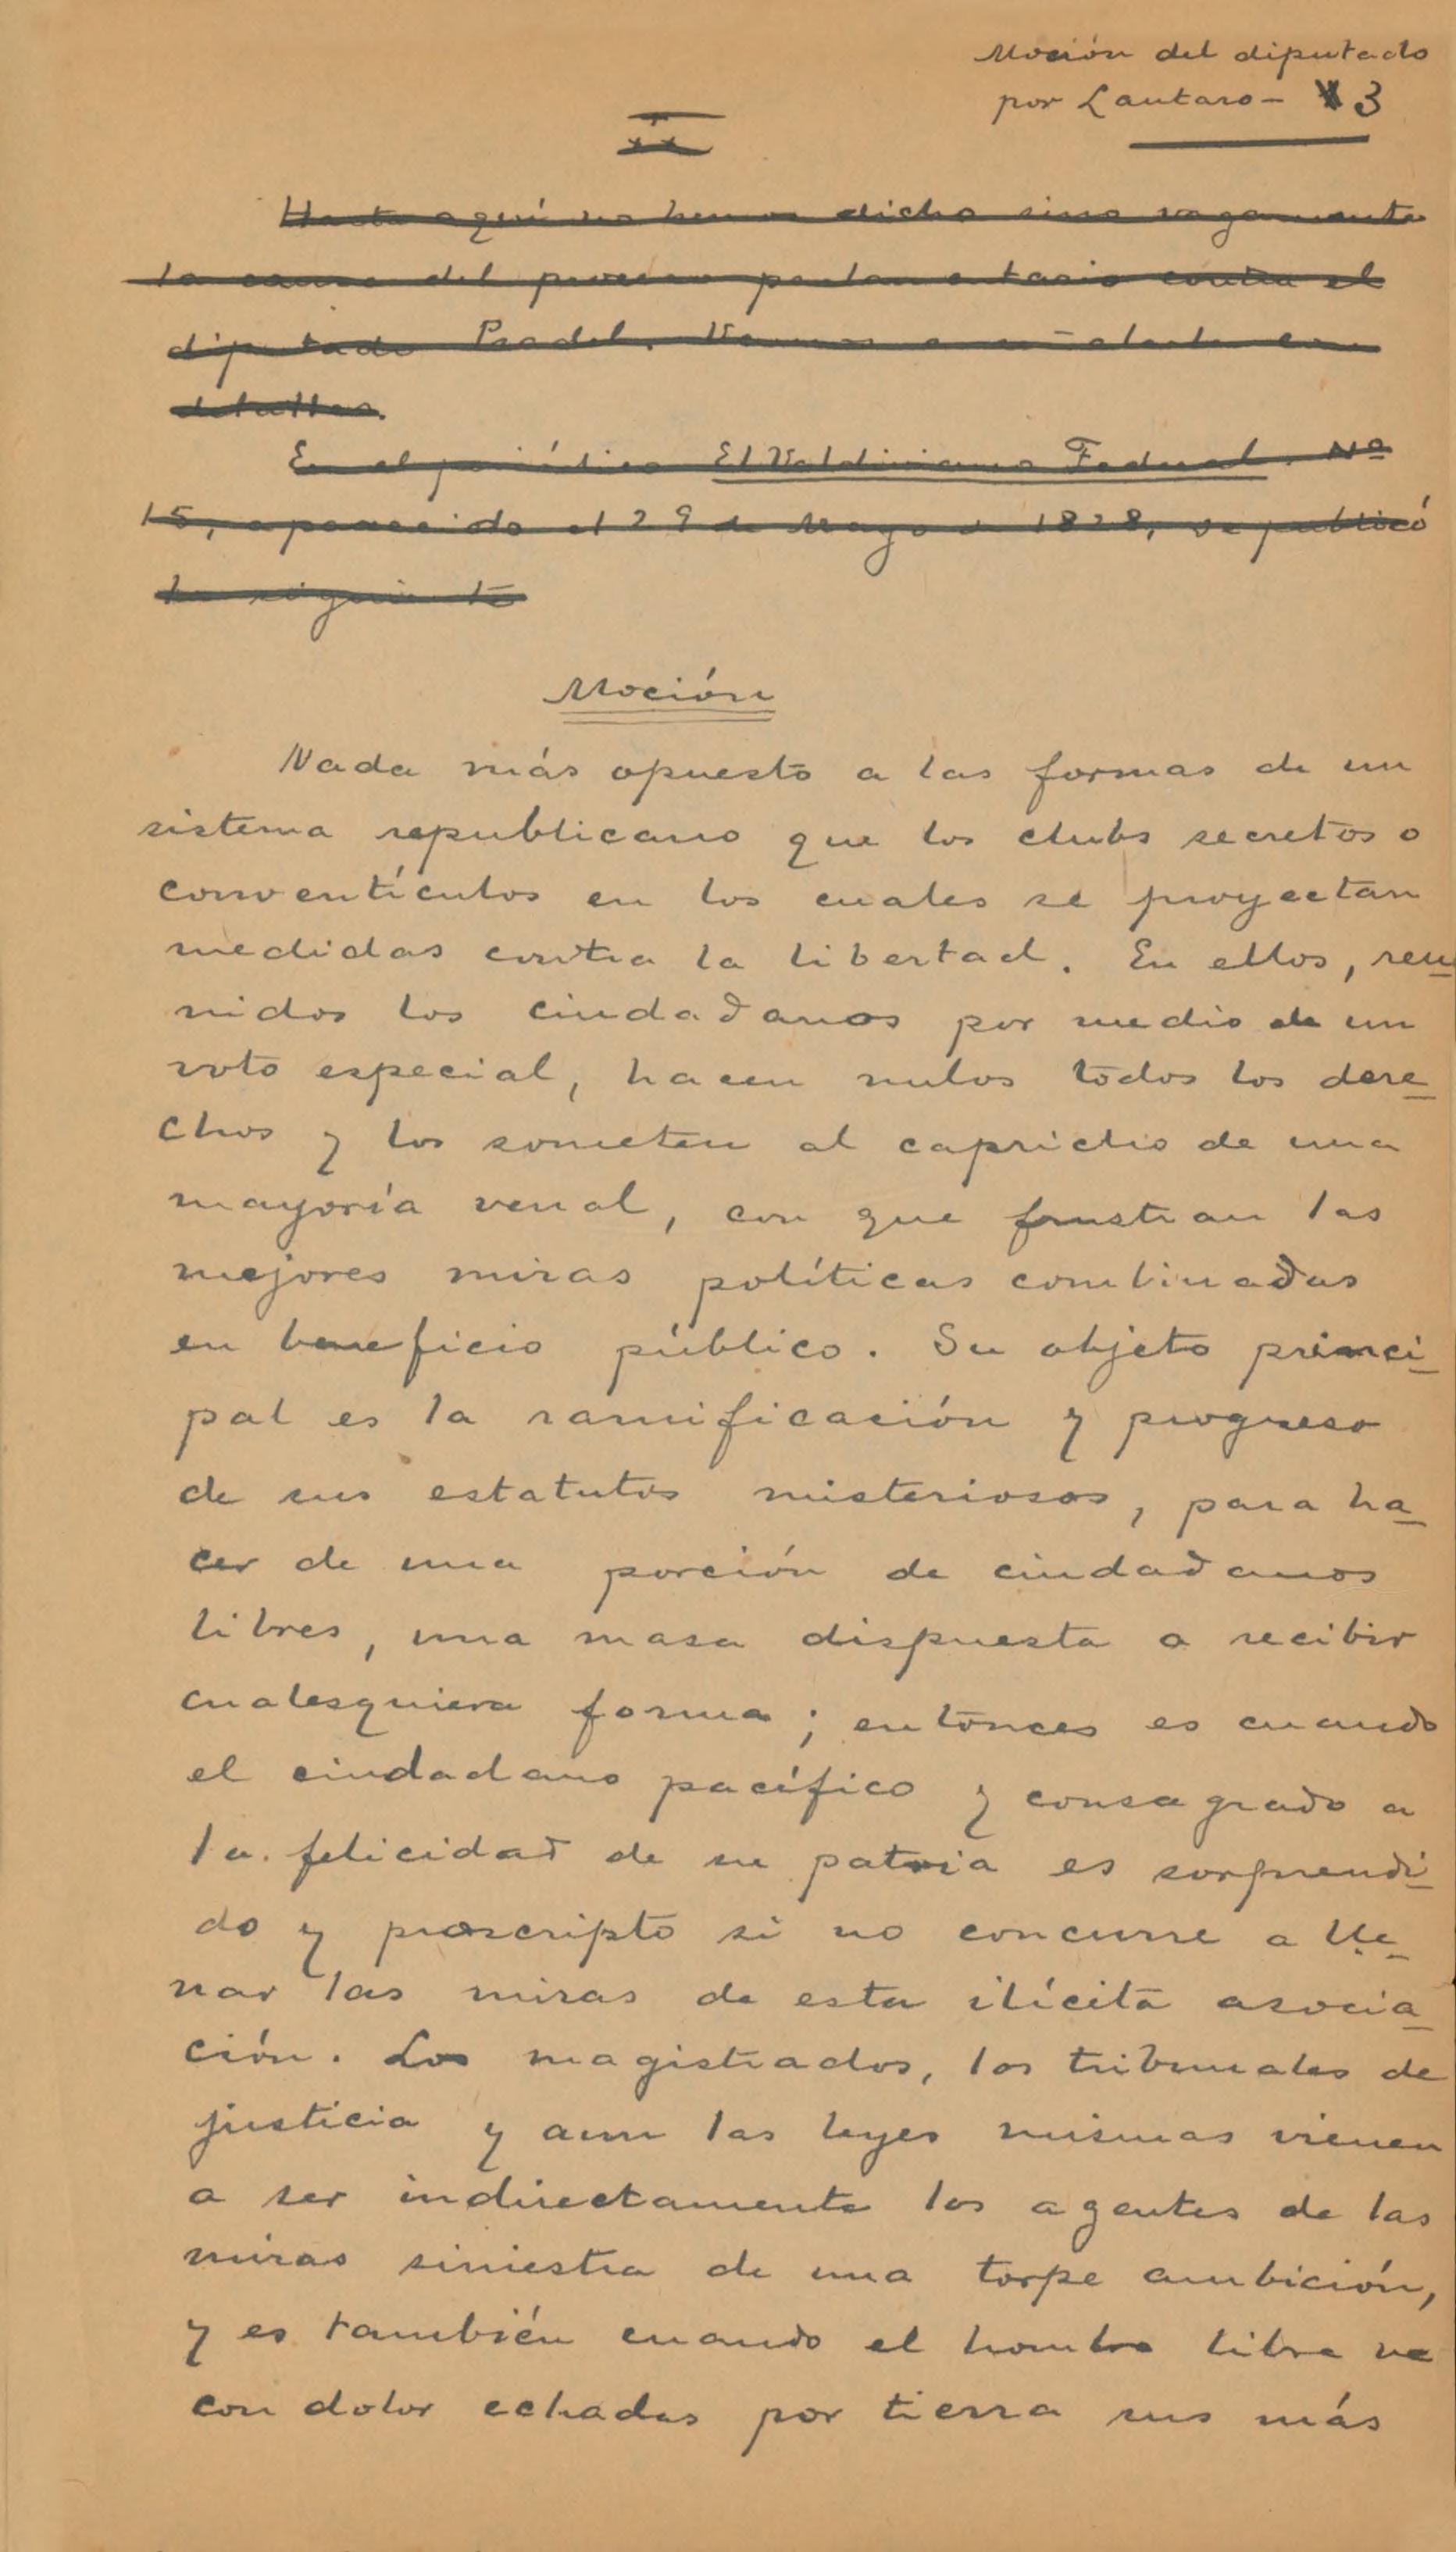 Moción del diputado
por Lautaro - 3
II
Hasta aquí no hemos dicho sino vagamente
la causa del proceso parlamentario contra el
diputado Pradel. Vamos a en
detalles.
En el periódico El Valdiviano Federal. Nº
15, aparecido el 29 de Mayo de 1828, se publicó
lo siguiente
Moción
Nada más opuesto a las formas de un
sistema republicano que los clubs secretos o
conventículos en los cuales se proyectan
medidas contra la libertad. En ellos, reu
nidos los ciudadanos por medio de un
voto especial, hacen nulos todos los dere
chos y los someten al capricho de una
mayoría venal, con que frustran las
mejores miras políticas combinadas
en beneficio público. Su objeto princi
pal es la ramificación y progreso
de sus estatutos misteriosos, para ha
cer de una porción de ciudadanos
libres, una masa dispuesta a recibir
cualesquiera forma; entonces es cuando
el ciudadano pacífico y consagrado a
la felicidad de su patria es sorprendi
do y proscripto si no concurre a lle
nar las miras de esta ilícita asocia
ción. Los magistrados, los tribunales de
justicia y aun las leyes mismas vienen
a ser indirectamente los agentes de las
miras siniestra de una torpe ambición,
y es también cuando el hombre libre ve
con dolor echadas por tierra sus más